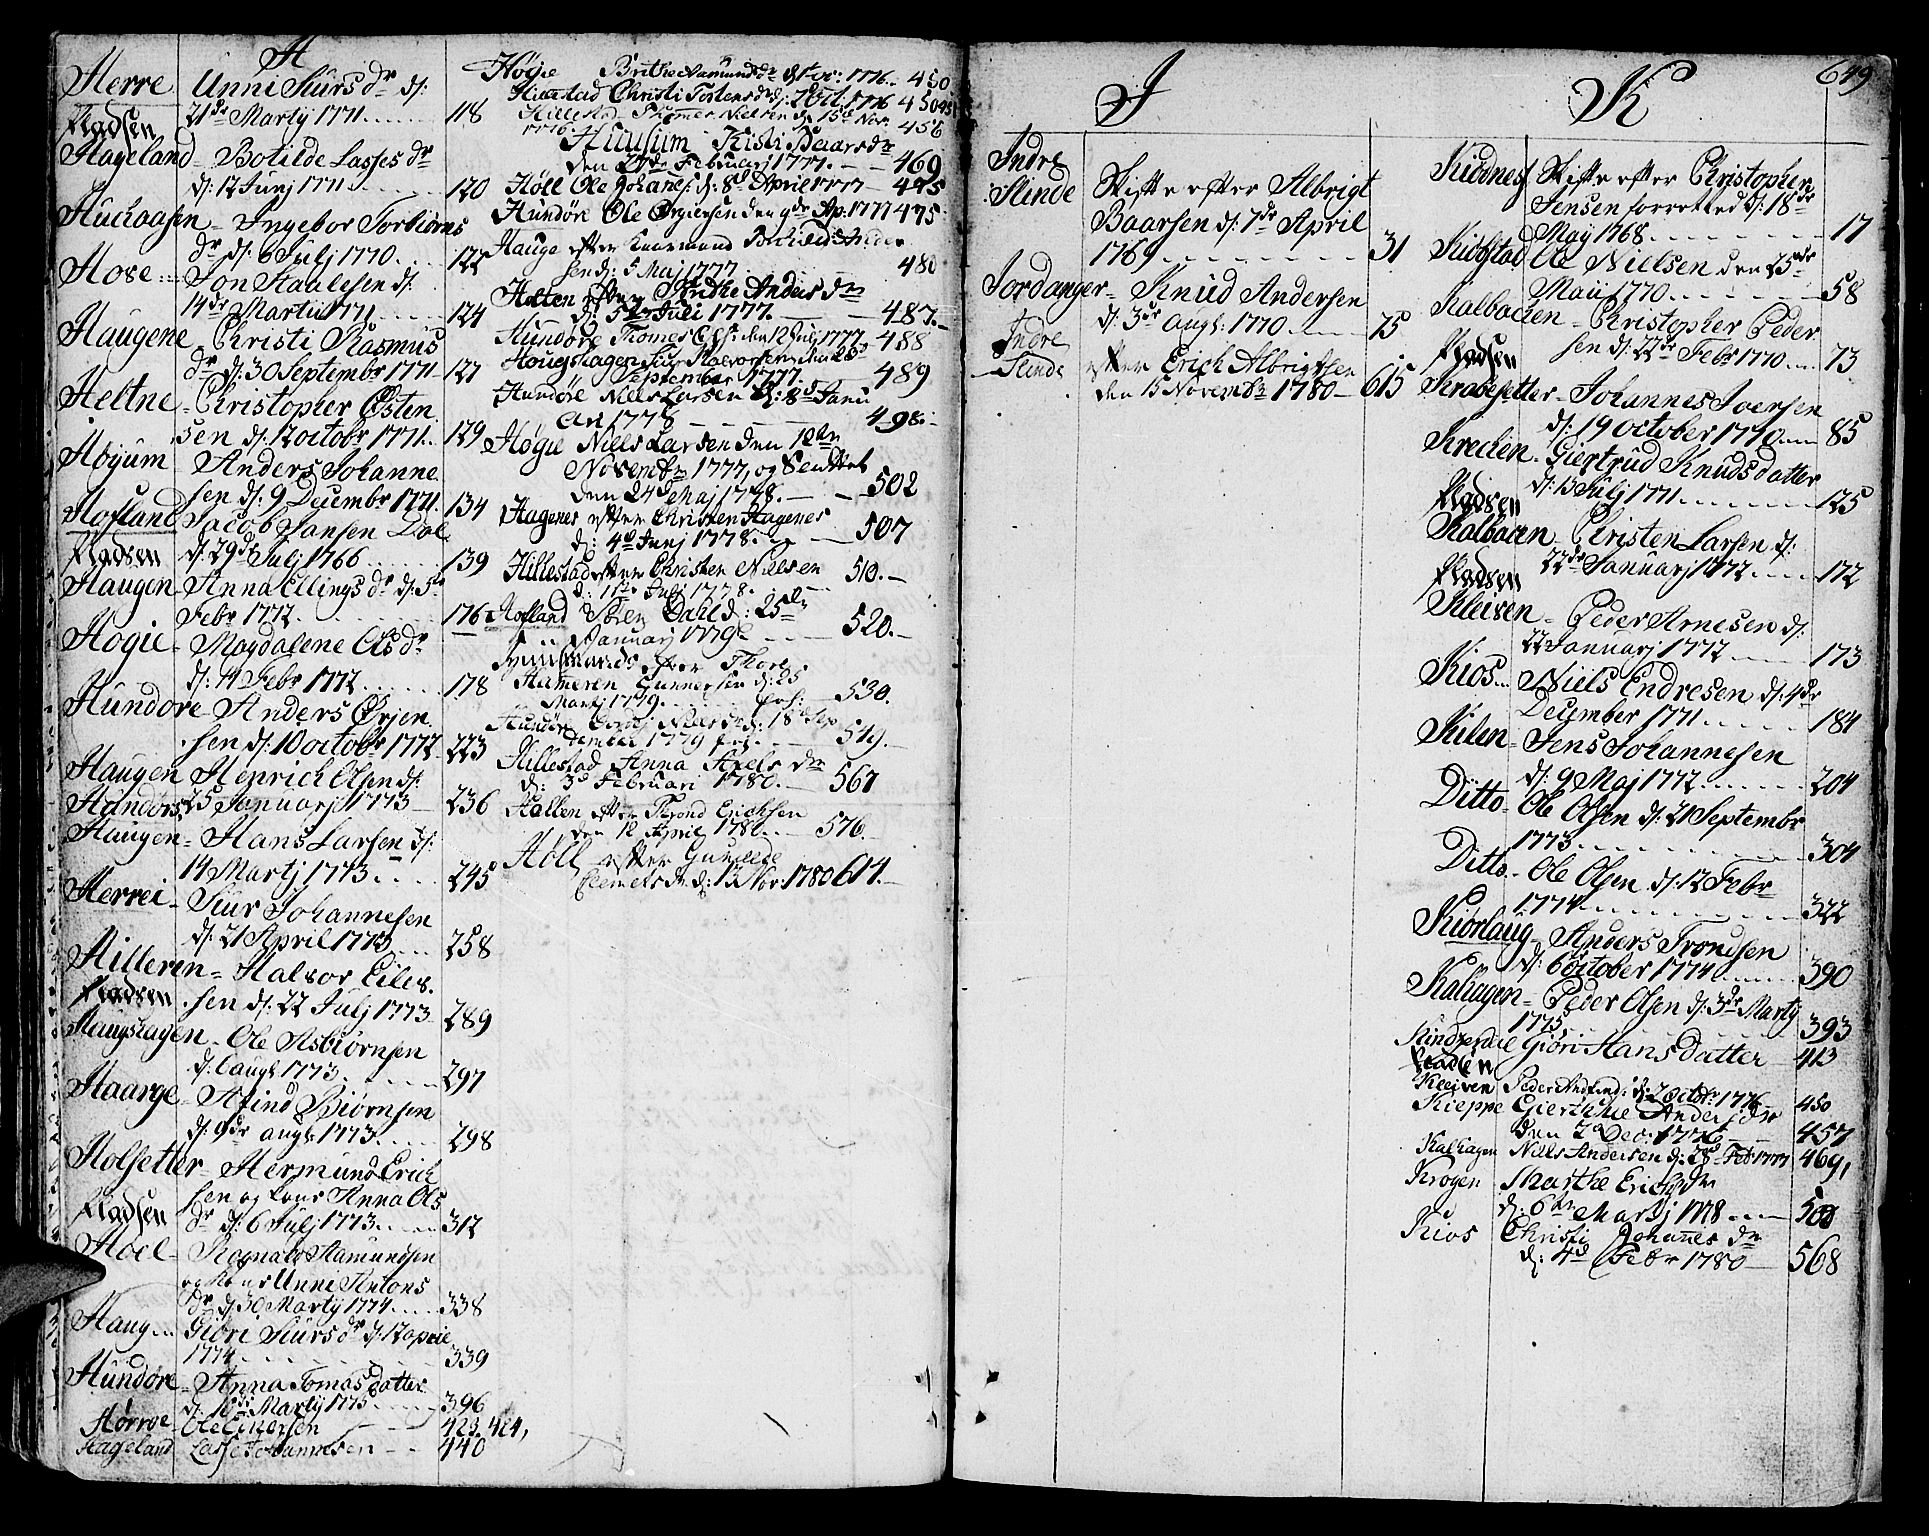 H
Herre Unni Siurs dr d:
Pladsen 21de Martij 1771 118
Hageland Botilde Lasses dr
d: 12 Junj 1771 120
Huchaasen Ingebor Torbiørns
dr d: 6 Julj 1770 122
Hove Jon Haalesen d:
14de Martii 1771 124
Haugene Christi Rasmus
dr d: 30 Septembr 1771 127
Heltne Christopher Østen
sen d: 12 octobr 1771 129
Høyum Anders Johanne
sen d: 9 Decembr 1771 134
Hofland Jacob Hansen Dal
Pladsen d: 29de Julj 1766 139
Haugen Anna Ellings dr d: 5te
Febr 1772 176
Høgie Magdalene Ols dr
d: 14 Febr 1772 178
Hundøre Anders Ørjen
sen d: 10 octobr 1772 223
Haugen Henrich Olsen d:
Hundørs 25 Januarj 1773 236
Haugen Hans Larsen d:
14 Martj 1773 245
Herrei Siur Johannesen
d: 21 April 1773 258
Hilleren Halvor Eilev
Pladsen sen d: 22 Julj 1773 289
Haugshagen Ole Asbiørnsen
d: augl 1773 297
Haarge Afind Biørnsen
d: 9de augl: 1773 298
Holsetter Hermund Erich
sen og kone Anna Ols
Pladsen dr d: 6 Julj 1773 312
Hoel Rognald Hamundsen
og kone Unni Antons
dr d: 30 Martij 1774 338
Haug Giøri Siurs dr d: 12 april
1774 339
Hundøre Anna Tomasdatter
d: 10de Martij 1775 396
Hørroe Ole Einersen 423. 424,
Hageland Lasse Johannesen 440
Høgie Brithe Aamunds dr d: 1 oc: 1776 450
Hillestad Christi Tostens dr d: 2 Oct: 1776 450
Hillestad Thomes Nielsen d: 15d Nov:
1776 456
Huusum Kisti Baars dr
den 27de Februarj 1777. 469
Høll Ole Johanes: d: 8d April 1777 475
Hundøre Ole Ørgiersen den 9de Ap: 1777 475
Hauge efter Kaarmand Botholld Ander
sen d: 5 Maj 1777 480
Holten efter Brithe Andus dr
d: 5te Juli 1777. 487.
Hundøre Thomes Ols: den 12 Junj 1777 488
Hougshagen Siur Halvorsen den 25d
September 1777. 489
Hundøre Niels Larsen d: 8d Janu
ari 1778 498.
Høgie Niels Larsen den 18de
Novembr 1777, og Senttet
den 24d Maj 1778. 502
Hagenes efter Christen Hagenes
d: 4d Junj 1778. 507
Hillestad efter Christen Nielsen
d: 11te Julj 1778. 510.
Hofland Søren Dahl d: 25de
Januarj 1779 520.
efter Thore
Hameren Gunnersen d: 25
Martj 1779 530.
Hundøre Niels dr d: 18de Sep
tember 1779 549.
Hillestad Anna Axels dr
d: 3d Februari 1780. 567
Hallen efter Trond Erichsen
den 12 April 1780. 576.
Høll efter Gunilde
Clemets dr d: 13 Nov: 1780 614.
649
J
Indre
Slinde Skifte efter Albrigt
Baarsen d: 7de April
1769 31
Jordanger Knud Andersen
d: 3de augl: 1770 75
Indre
Slinde efter Erich Albrigtsen
den 15 Novembr 1780 615
K
Kiødnes Skifte efter Christopher
Jensen forretted d: 18de
May 1768 17
Kiøbstad Ole Nielsen den 25de
Maii 1770 58
Kalbachen Christopher Peder
Pladsen sen d: 22de Febr 1770 73
Krabesetter Johannes Joersen
d: 19 october 1770 85
Krechen Giertrud Knudsdatter
Pladsen d: 13 Julj 1771 125
Kalbaaen Christen Larsen d:
Pladsen 22de Januarj 1772 172
Kleiven Peder Arnesen d:
22 Januarj 1772 173
Kios Niels Endresen d: 4de
December 1771 184
Kilen Jens Johannesen
d: 9 Maj 1772 204
Ditto Ole Olsen d: 21 Septembr
1773 304
Ditto Ole Olsen d: 12 Febr
1774 322
Kiørlaug Anders Trondsen
d: 6 october 1774 390
Kalhagen Peder Olsen d: 3de Martij
1775 393
Kindzedal Giøri Hansdatter 413
Pladsen
Kleiven Peder d: 2 Octobr: 1776 450
Kieppe Gierthrue Anders dr
den 7d Dec: 1776 457
Kalhagen Niells Andersen d: 28d Feb 1777 469,
Krogen Marthe Erichs dr
d: 6te Martj 1778
Kios Christi Johannes dr
d: 4d Febr 1780 568